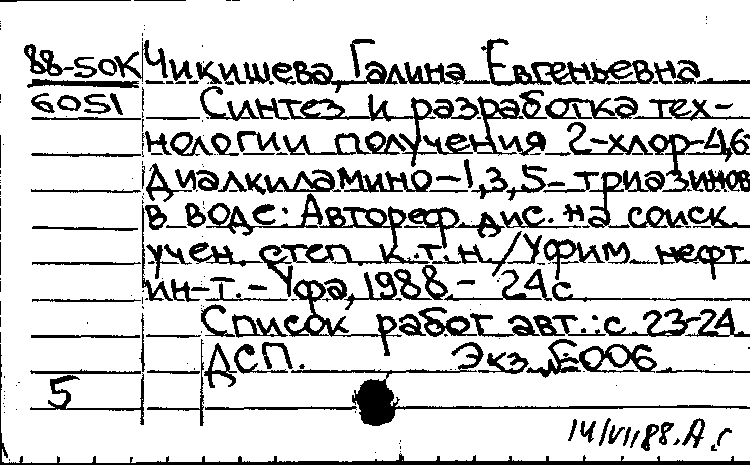 88-50К Чикишева, Галина Евгеньевна.
6051 Синтез и разработка тех-
нологии получения 2-хлор-4,6
диалкиламино-1,3,5-триазинов
в воде: Автореф. дис. на соиск.
учен. степ. к.т.н. / Уфим. нефт.
ин-т. - Уфа, 1988. - 24с.
Список работ авт.: с. 23-24.
ДСП. Экз. №006.
5
14/VI 88. А.С